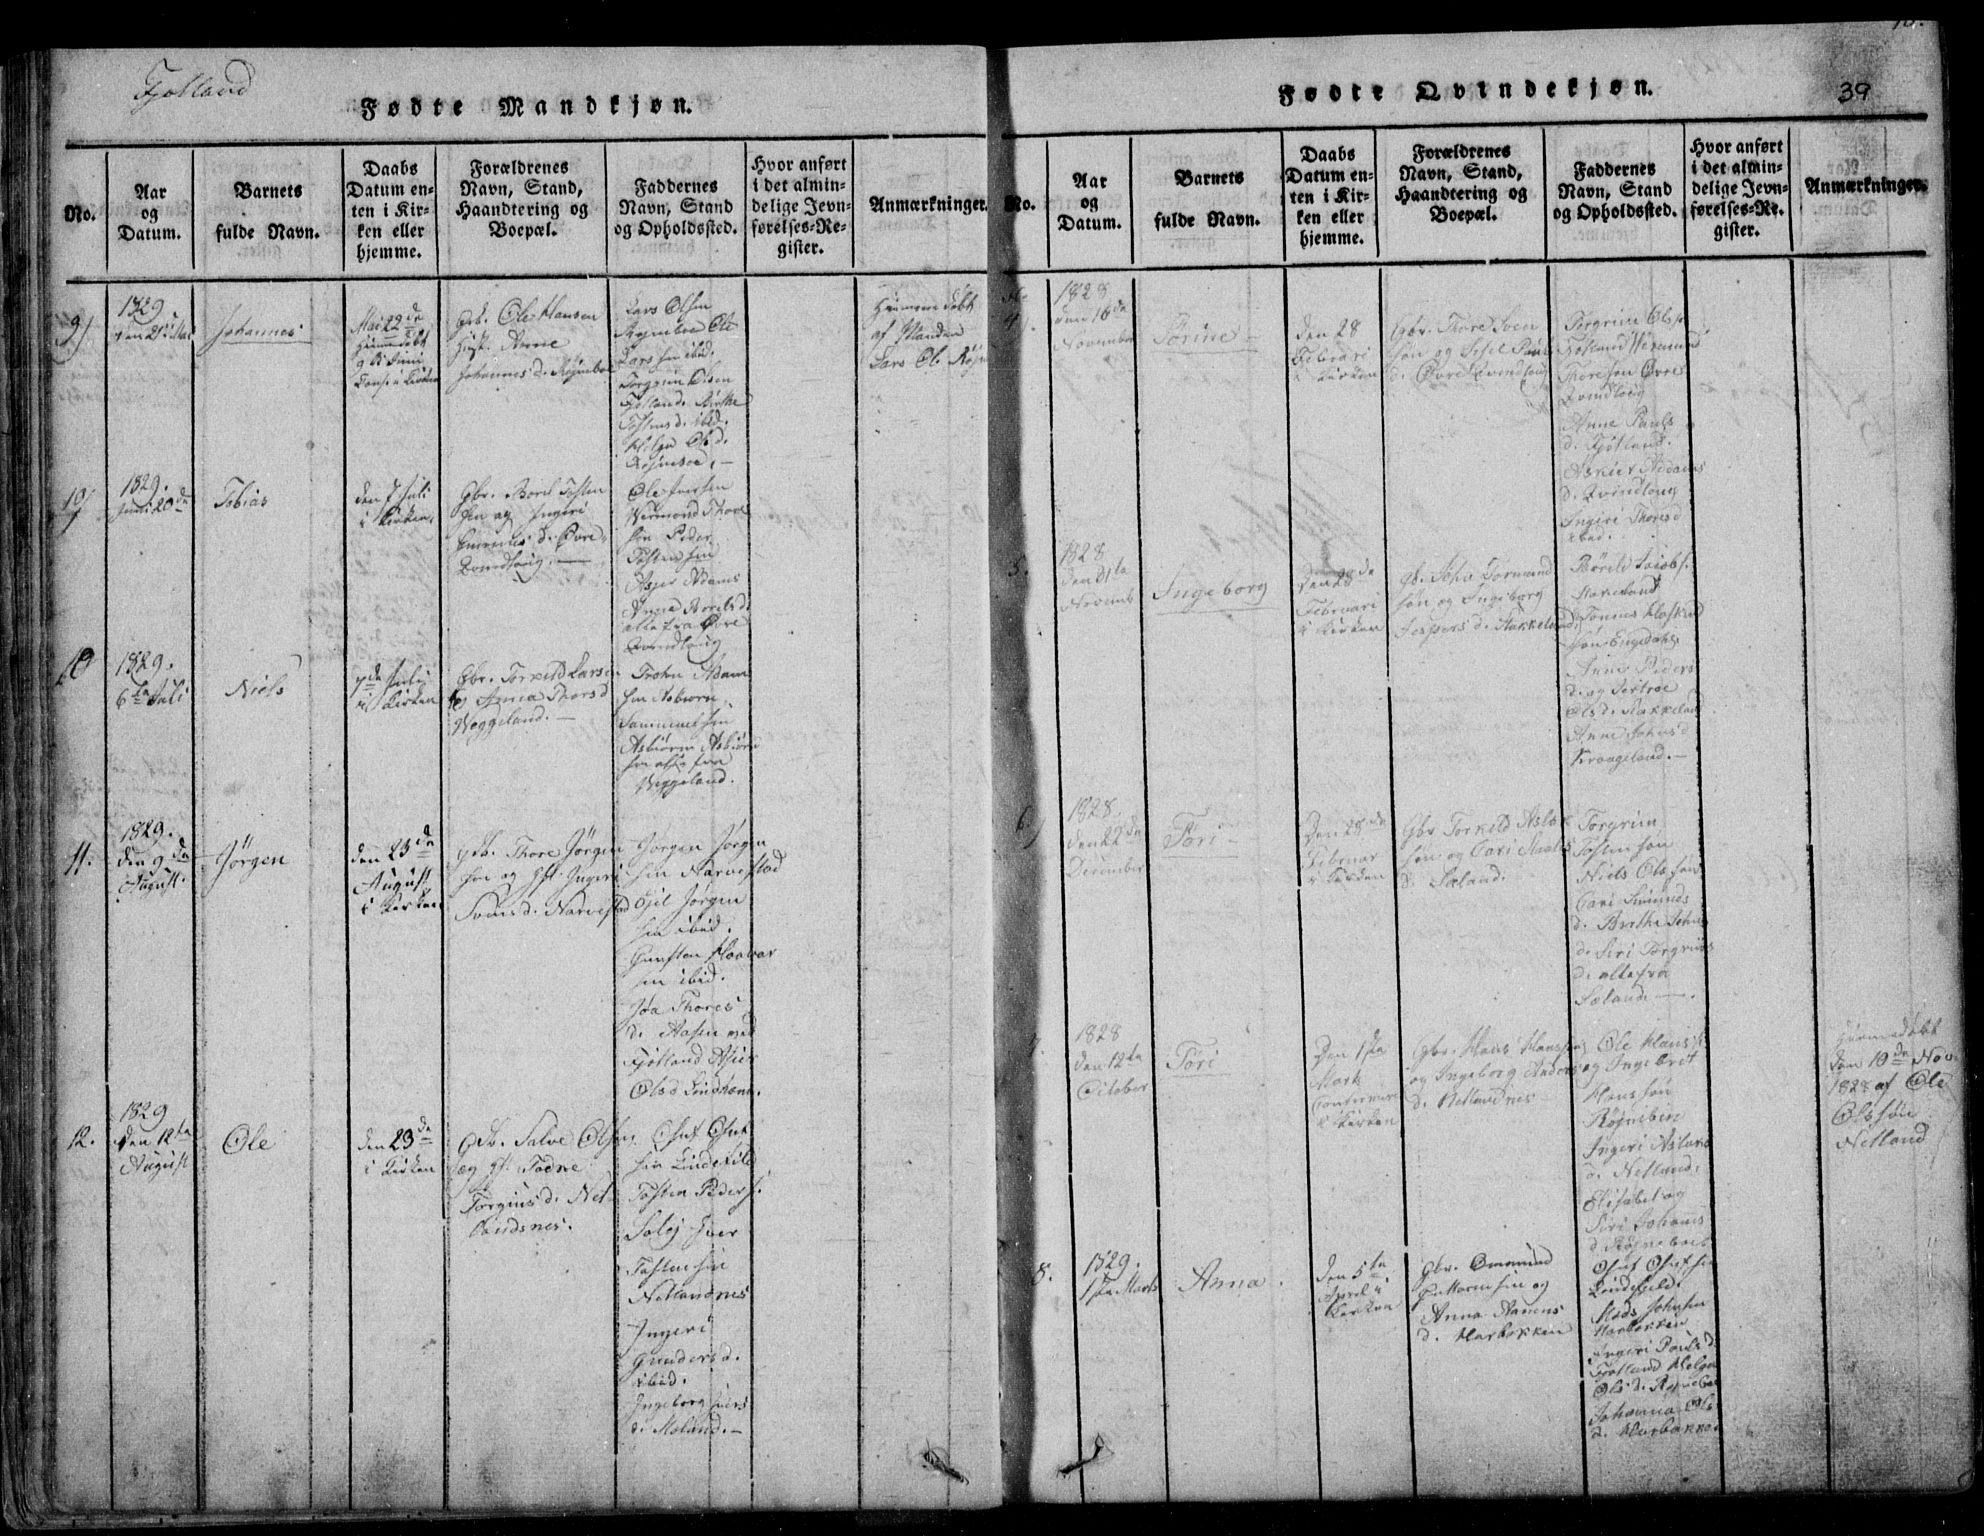 Fjotland
Fødte Mandkjøn.
No.
Aar
og
Datum.
Barnets
fulde Navn.
Daabs
Datum en-
ten i Kir-
ken eller
hjemme.
Forældrenes
Navn, Stand,
Haandtering og
Boepæl.
Faddernes
Navn, Stand
og Opholdssted.
Hvor anført
i det almin-
delige Jevn-
førelses-Re-
gister.
Anmærkninger.
9)
1829
den 21de Mai
Johannes
Mai 22de
Gbr. Ole Hansen
Hust. Anne
Johannes d. Røjneboe
Lars Olsen
Røjneboe Ole
Lars søn ibid.
Torgrim Olsen
Fjotland. Birthe
Tostens d. ibid.
Helga Ols d.
Røjneboe. —
Hjemme døbt
af Manden
Lars Ols. Røjn
10
1829.
Juni 20de
Tobias
den 7 Juli
i Kirken.
Gbr. Boril Tosten
søn og Ingeri
d. Øvre
Qvindlaug. —
Ole Iversen
Wermond Thore
søn Peder
Tosten søn
Asjer Adams
Anna Borils d.
alle fra Øvre
Qvindlaug
10
1829.
6te Juli
Niels
7de Julij
i Kirken
Gbr. Torkild Lars
og Anna Thors d
Weggeland. —
Trohn Adam
søn Asbiørn
Sammuel søn
Asbiørn Asbiørn
søn alle fra
Weggeland.
11.
1829.
den 9de
August.
Jørgen
den 23de
August
i Kirken
Gdb. Thore Jørgen
søn og Hst. Ingeri
Svens d. Narvestad
Jørgen Jørgen
søn Narvestad
Ejel Jørgen
søn ibid.
Gunsten Haavar
søn ibid.
Joa Thores
d. Aasen ved
Fjotland Asier
Ols d Lindhom.
12.
1829
den 12te
August
Ole
den 23de
i Kirken
Gdb. Salve Olsøn
og Hst. Todne
Torgius d. Net
landsnes.
Osuf Osuf
søn Lindefild
Tosten Peders.
Soløj Iver
Tosten søn
Netlandnes
Ingeri
Gunders d.
ibid.
Ingeborg Ivers
d. Moland. —
Fødte Qvindekjøn.
39
No.
Aar
og
Datum.
Barnets
fulde Navn.
Daabs
Datum en-
ten i Kir-
ken eller
hjemme.
Forældrenes
Navn, Stand,
Haandtering og
Boepæl.
Faddernes
Navn, Stand
og Opholdssted.
Hvor anført
i det almin-
delige Jevn-
førelses-Re-
gister.
Anmærkninger.
No
4).
1828
den 16de
November
Torine —
den 28
Februari
i Kirken
Gbr. Thore Sven
søn og Sisel Pauls
d. Øvre Qvindlaug
Torgrim Ols s.
Fjotland Wermund
Thore søn Øvre
Qvindlaug
Anne Pauls
d. Fjotland.
Askier Addams
d. Qvindlaug
Ingeri Thores d
ibid.
5.
1828
den 21te
Novemb
Ingeborg
Den 28de
Februari
i Kirken
Gb. John Tormund
søn og Ingeborg
Jespers d. Hakkeland
Børild Jacobs.
Hakeland
Tønnes
søn Engedahl
Anne Peders
d. og Sertroe
Ols d. Hakkeland
Anne Johns d
Kraageland. —
6.
1828.
den 22de
December
Tori —
Den 28de
Februar
i Kirken
Gbr Torkild Aslak
søn og Cari
d. Sæland.
Torgrim
Tosten søn
Niels Ols søn
Cari Simunds
d. Birthe Johns
d. Siri Torgrims
d. alle fra
Sælande —.
7.
1828
den 12te
October
Tori
Den 1ste
Marts
i Kirken
Gbr. Hans Hanssen
og Ingeborg Anders
d. Netlandnes
Ole Hans s.
og Ingebret
Hans søn
Røjneboe
Ingeri Aslaks
d. Netland.
Elisabet og
Siri Johanns
d. Røjneboe
Hjemmedøbt
den 10de Nov
1828 af Ole
Ols søn
Netland
8.
1829.
1ste Marts
Anna.
den 5te
April i
Kirken
Gbr. Omund
Guttorm søn og
Anna Aanens
d. Harbakken
Osuf Osuf søn
Lindefjeld.
Mads Johnsen
Harbakken
Ingeri Pauls d.
Fjotland Helga
Ols d. Røjneboe
Johanna Ols
d. Harbakken